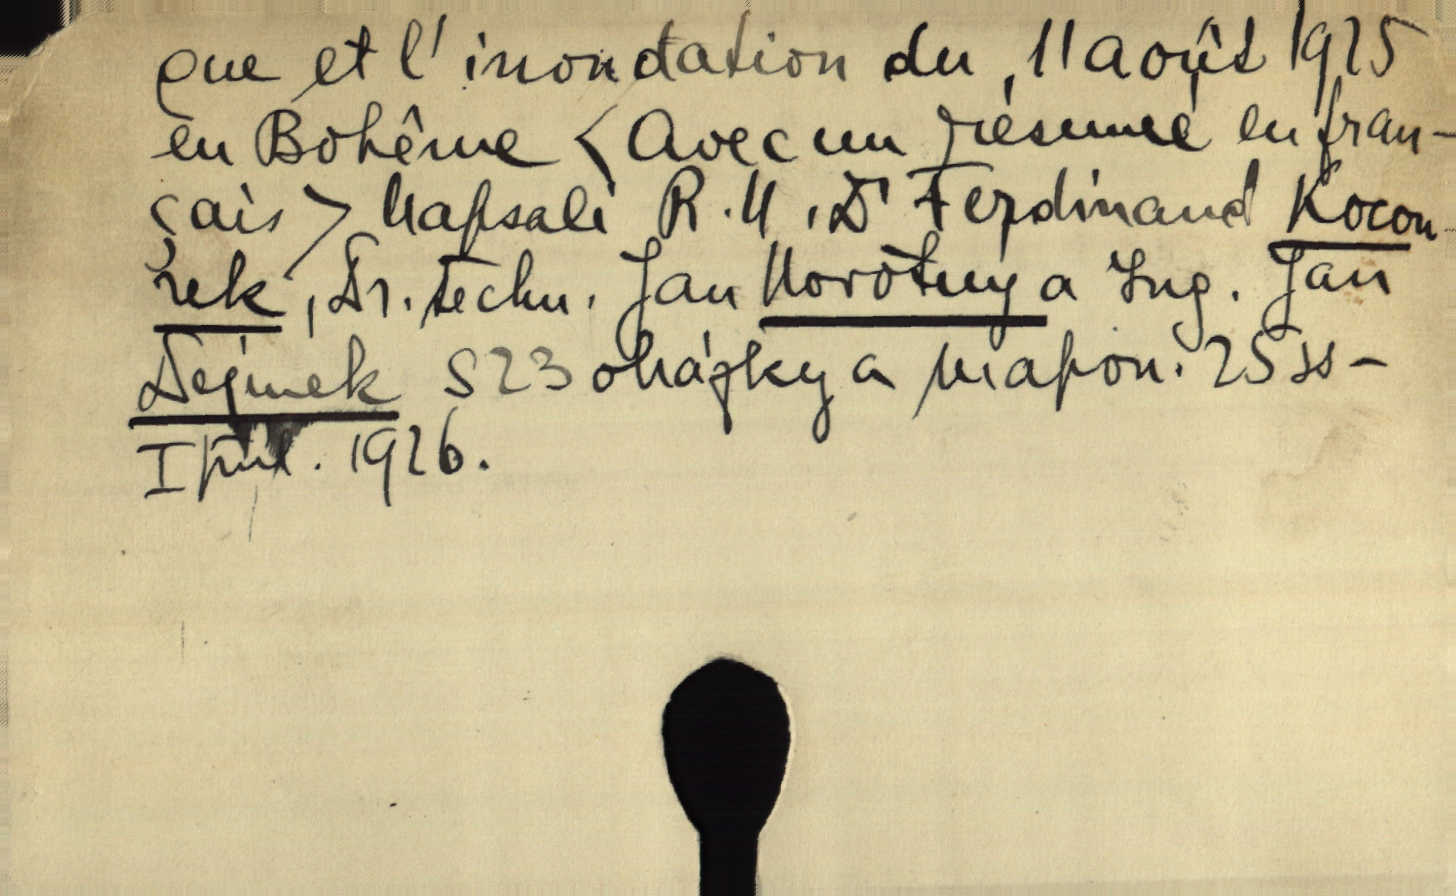 que et l'inondation du 11 août 1925
en Bohême < Avec un résumé en fran-
çais > Napsali R. N. Dr Ferdinand Kocou-
rek, Dr. techn. Jan Novotny a Ing. Jan
Dejmek S 23 obrázky a mapou. 25 ss -
I fưl. 1926.